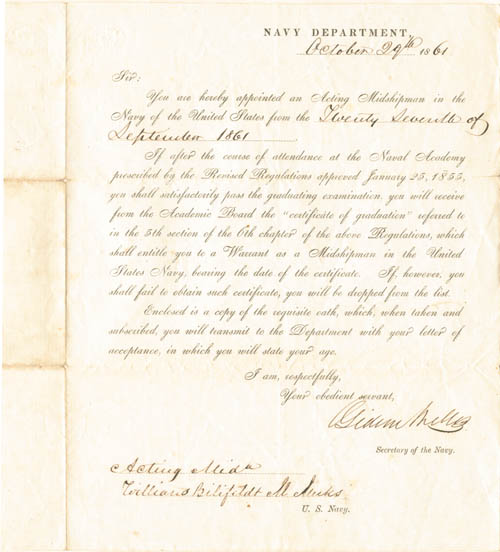 NAVY DEPARTMENT,
October 29th 1861
Sir:
You are hereby appointed an Acting Midshipman in the
Navy of the United States from the Twenty Seventh of
September 1861
If after the course of attendance at the Naval Academy
prescribed by the Revised Regulations approved January 25, 1855,
you shall satisfactorily pass the graduating examination, you will receive
from the Academic Board the "certificate of graduation" referred to
in the 5th section of the 6th chapter of the above Regulations, which
shall entitle you to a Warrant as a Midshipman in the United
States Navy, bearing the date of the certificate. If, however, you
shall fail to obtain such certificate, you will be dropped from the list.
Enclosed is a copy of the requisite oath, which, when taken and
subscribed, you will transmit to the Department with your letter of
acceptance, in which you will state your age.
I am, respectfully,
Your obedient servant,
Gideon Welles
Secretary of the Navy.
Acting Midn
William
U. S. Navy.